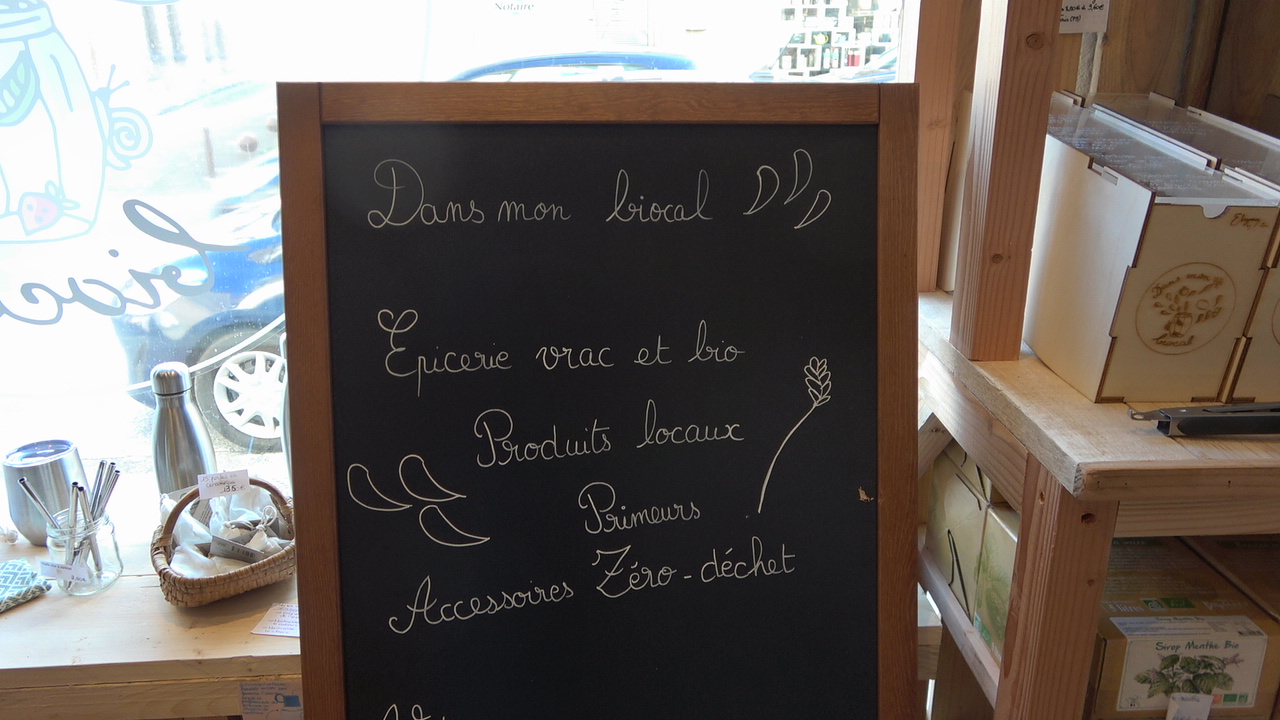 Notaire
Dans mon biocal
Epicerie vrac et bio
Produits locaux
Primeurs
Accessoires Zéro-déchet
Dans mon
biocal
Sirop Menthe Bio